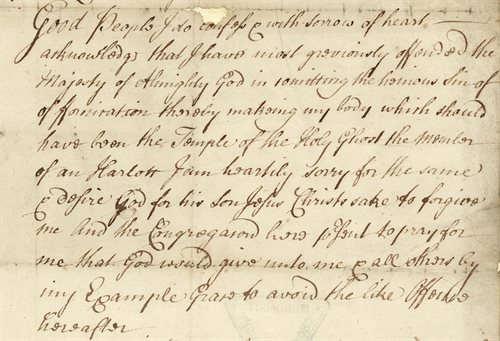 Good People I do confess & with sorrow of heart
acknowledge that I have most greviously offended the
Majesty of Almighty God in comitting the heinous sin of
of fornication thereby makeing my body which should
have been the Temple of the Holy Ghost the Member
of an Harlott I am heartily sorry for the same
& desire God for his Son Jesus Christs sake to forgive
me and the Congregacon here psent to pray for
me that God would give unto me & all others by
my Example Grace to avoid the like Offence
hereafter